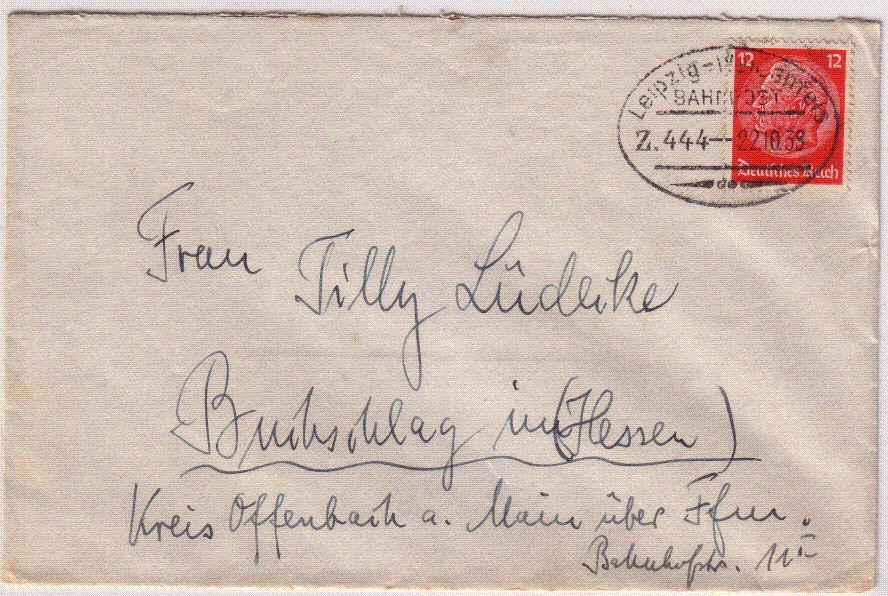 12 12
Leipzig-Weißenfels
BAHNPOST
Z. 444 22.10.38
Deutsches Reich
Frau
Tilly Lüdecke
Buchschlag in (Hessen)
Kreis Offenbach a. Main über Ffm.
Bahnhofstr. 11 II